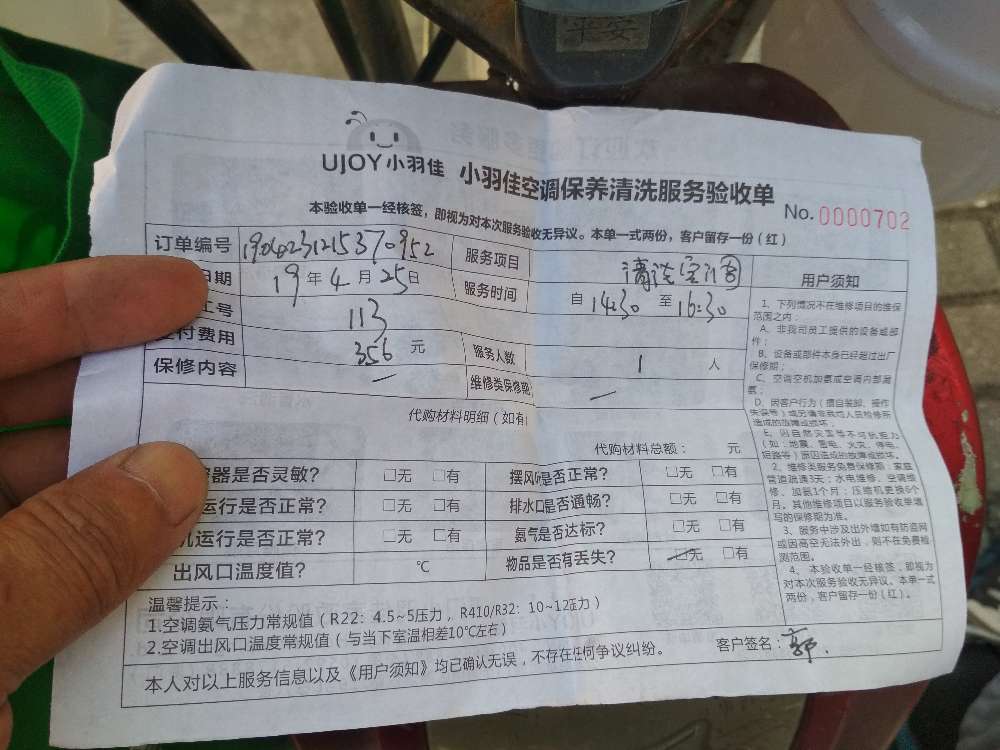 平安
UJOY小羽佳 小羽佳空调保养清洗服务验收单
No.0000702
本验收单一经核签，即视为对本次服务验收无异议。本单一式两份，客户留存一份（红）
订单编号 服务项目
日期 19年4月25日 服务时间 自14:30至16:30
工号 113
付费用 356元 服务人数 1人
保修内容 — 维修类保修期 —
代购材料明细（如有
代购材料总额： 元
器是否灵敏？ □无 □有 摆风 是否正常？ □无 □有
运行是否正常？ □无 □有 排水口是否通畅？ □无 □有
运行是否正常？ □无 □有 氨气是否达标？ □无 □有
出风口温度值？ ℃ 物品是否有丢失？ □无 □有
用户须知
1、下列情况不在维修项目的维保
范围之内：
A、非我司员工提供的设备或部
件；
B、设备或部件本身已经超过出厂
保修期；
C、空调空机加氨或空调内部漏
氨；
D、因客户行为（擅自装卸、操作
失误等）或另请非我司人员检修所
造成的故障或损坏；
E、因自然灾害等不可抗拒力
（如：地震、雷电、火灾、停电、
短路等）原因造成的故障或损坏。
2、维修类服务免费保修期：家庭
管道疏通3天；水电维修、空调维
修、加氨1个月；压缩机更换6个
月。其他维修项目以服务验收单填
写的保修期为准。
3、服务中涉及出外墙如有防盗网
或因高空无法外出，则不在免费检
测范围。
4、本验收单一经核签，即视为
对本次服务验收无异议。本单一式
两份，客户留存一份（红）。
温馨提示：
1.空调氨气压力常规值（R22：4.5~5压力，R410/R32：10~12压力）
2.空调出风口温度常规值（与当下室温相差10℃左右）
客户签名：郭.
本人对以上服务信息以及《用户须知》均已确认无误，不存在任何争议纠纷。